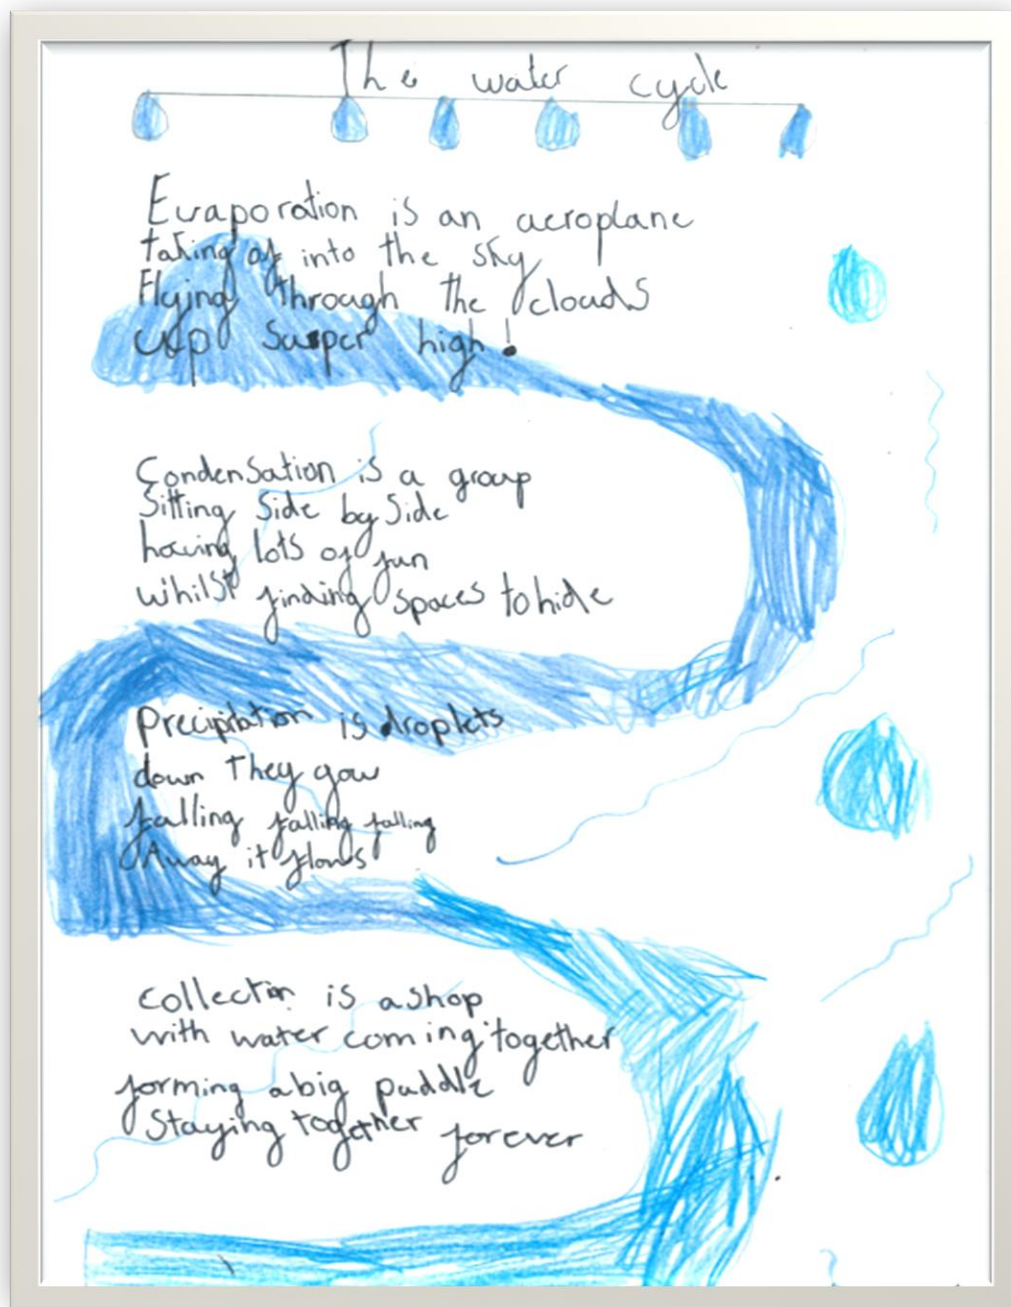 The water cycle
Evaporation is an aeroplane
taking of into the sky
Flying through the clouds
up super high!
Condensation is a group
Sitting Side by Side
having lots of fun
whilst finding spaces to hide
Precipitation is droplets
down They gow
falling falling falling
Away it flows
Collection is a shop
with water coming together
forming a big puddle
Staying together forever